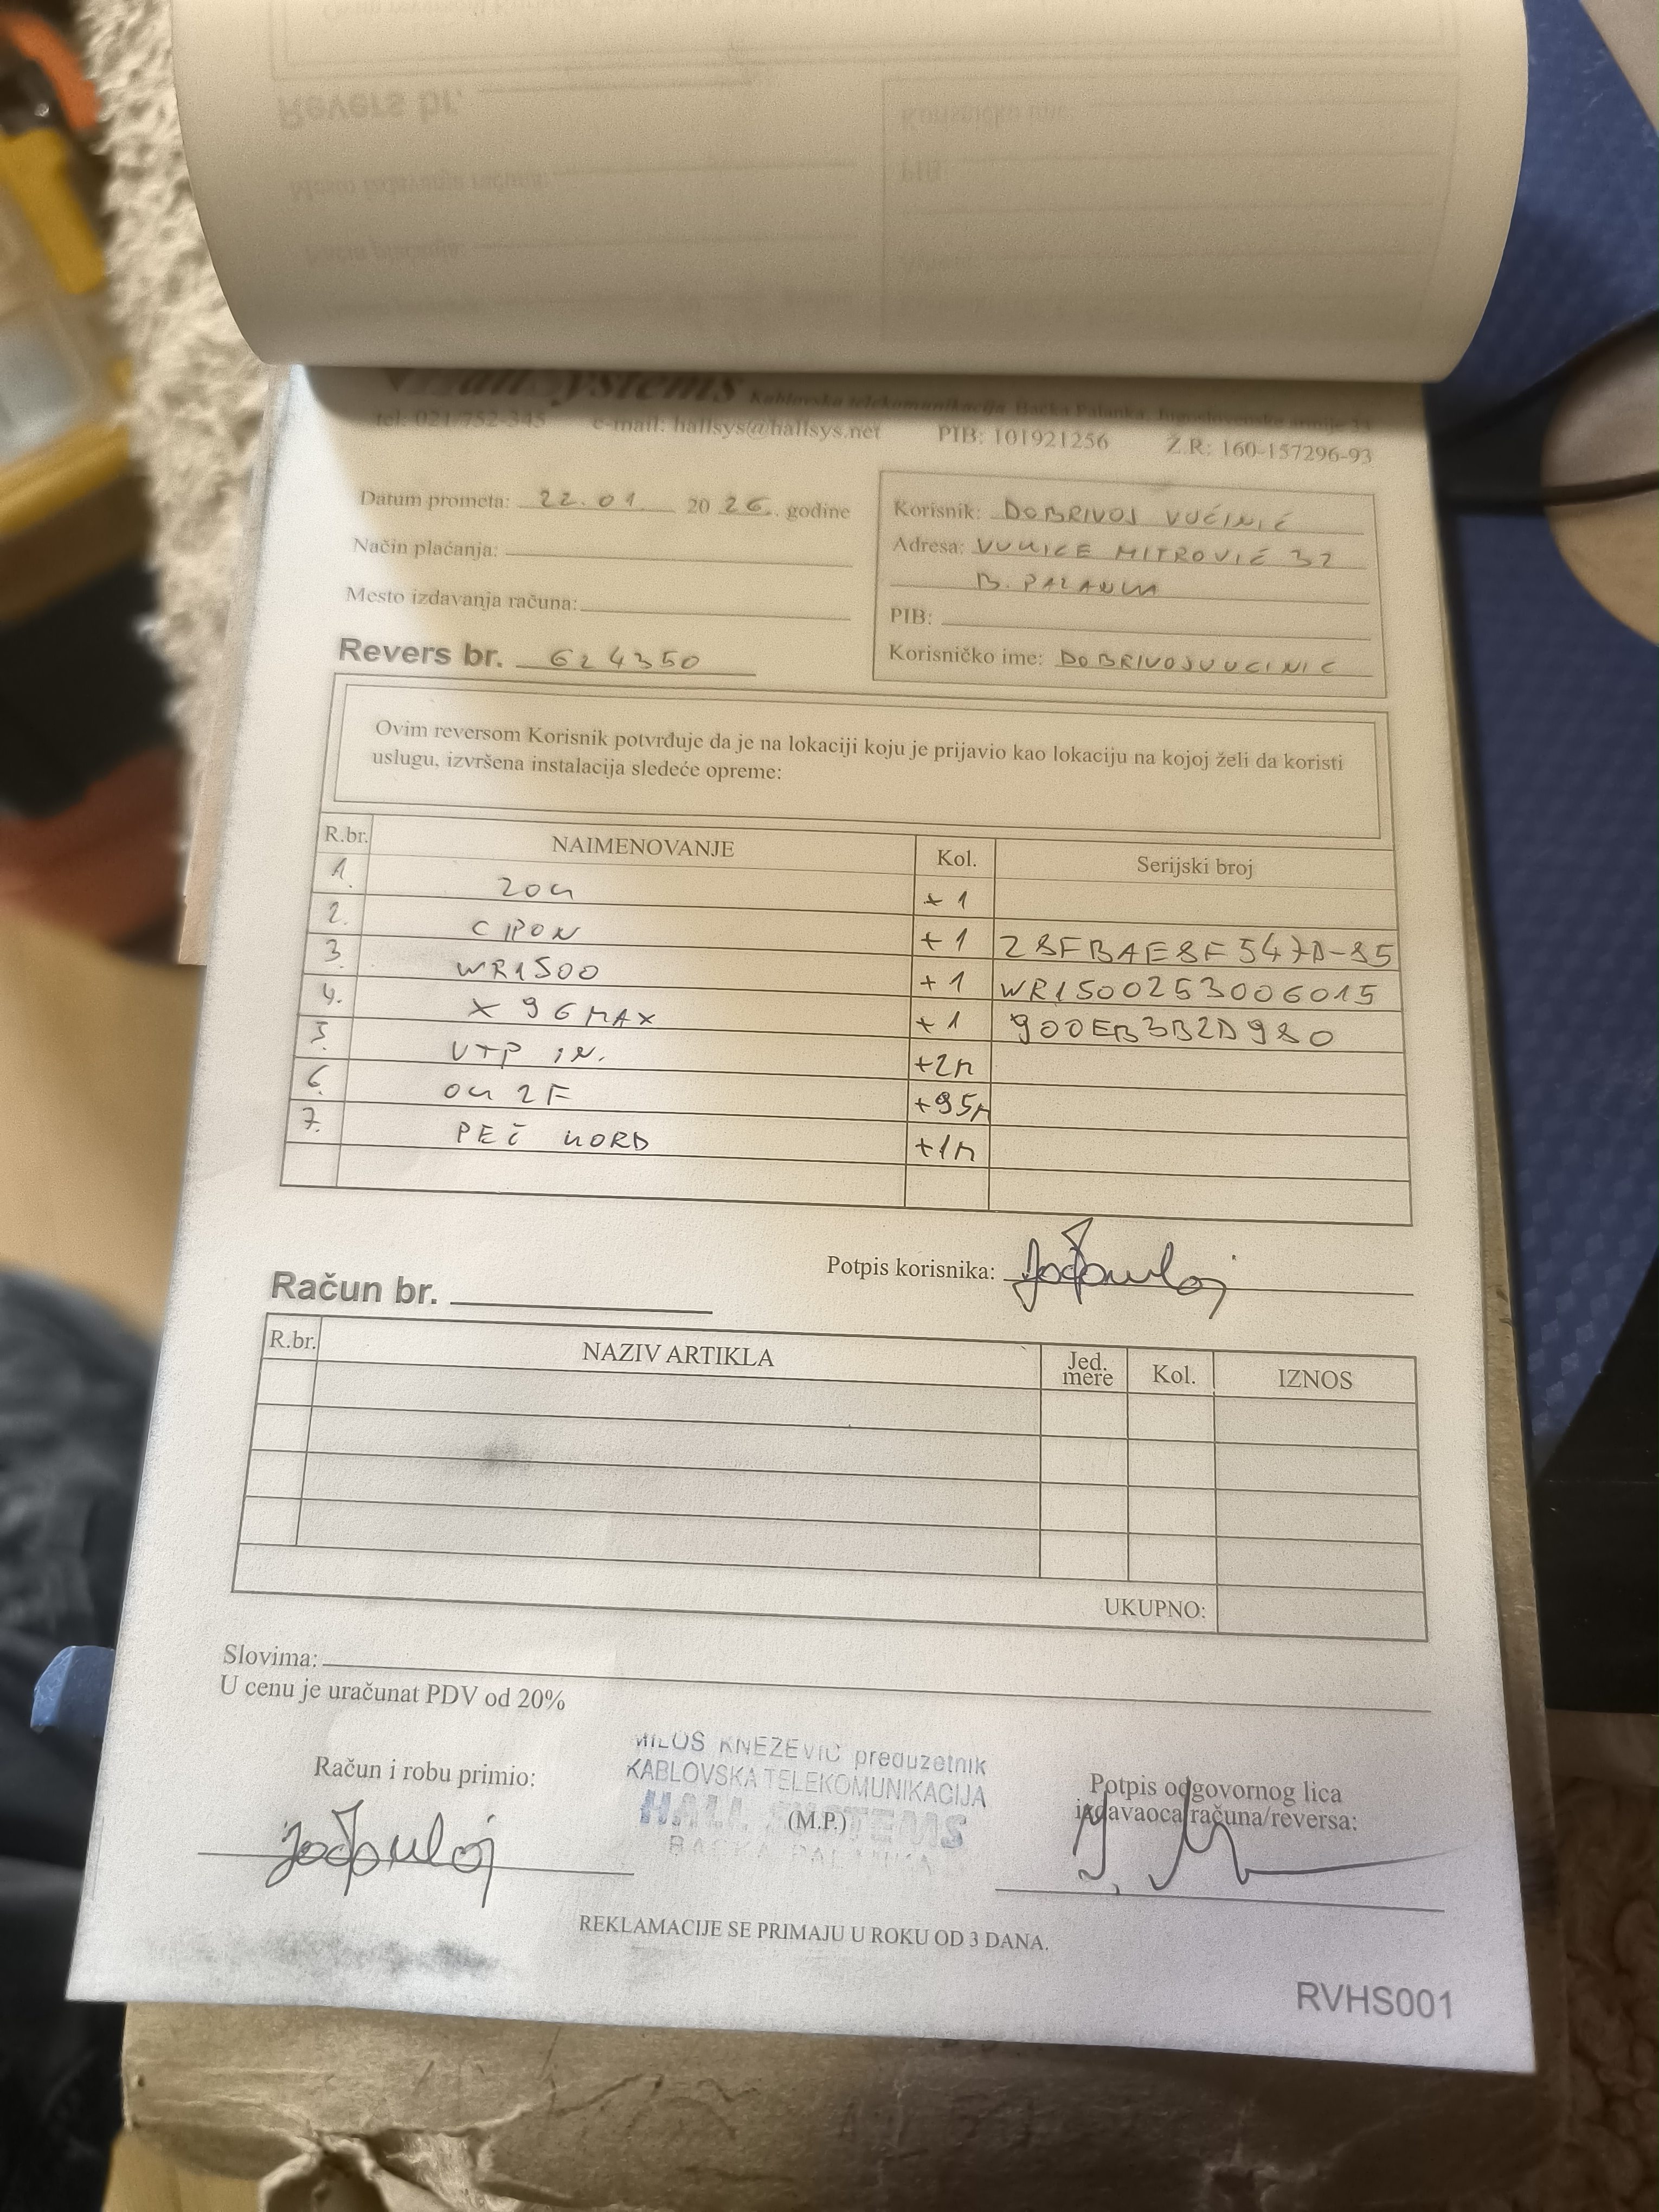 HallSystems Kablovska telekomunikacija Bačka Palanka, Jugoslovenske armije 33
tel: 021/752-345 e-mail: hallsys@hallsys.net PIB: 101921256 Ž.R: 160-157296-93
Datum prometa: 22.01. 2026. godine
Način plaćanja:
Mesto izdavanja računa:
Revers br. 624350
Korisnik: DOBRIVOJ VUČINIĆ
Adresa: VUKICE MITROVIĆ 32
B. PALANKA
PIB:
Korisničko ime: DOBRIVOJVUCINIC
Ovim reversom Korisnik potvrđuje da je na lokaciji koju je prijavio kao lokaciju na kojoj želi da koristi
uslugu, izvršena instalacija sledeće opreme:
R.br. NAIMENOVANJE Kol. Serijski broj
1. ZOK +1
2. CPON +1 28FBAE8F547D-85
3. WR1500 +1 WR1500253006015
4. X96MAX +1 900EB3B2D980
5. UTP IN. +2m
6. OK 2F +95m
7. PEČ KORD +1m
Potpis korisnika:
Račun br.
R.br. NAZIV ARTIKLA Jed. mere Kol. IZNOS
UKUPNO:
Slovima:
U cenu je uračunat PDV od 20%
Račun i robu primio:
MILOŠ KNEŽEVIĆ preduzetnik
KABLOVSKA TELEKOMUNIKACIJA
HALL SYSTEMS
(M.P.)
BAČKA PALANKA
Potpis odgovornog lica
izdavaoca računa/reversa:
REKLAMACIJE SE PRIMAJU U ROKU OD 3 DANA.
RVHS001